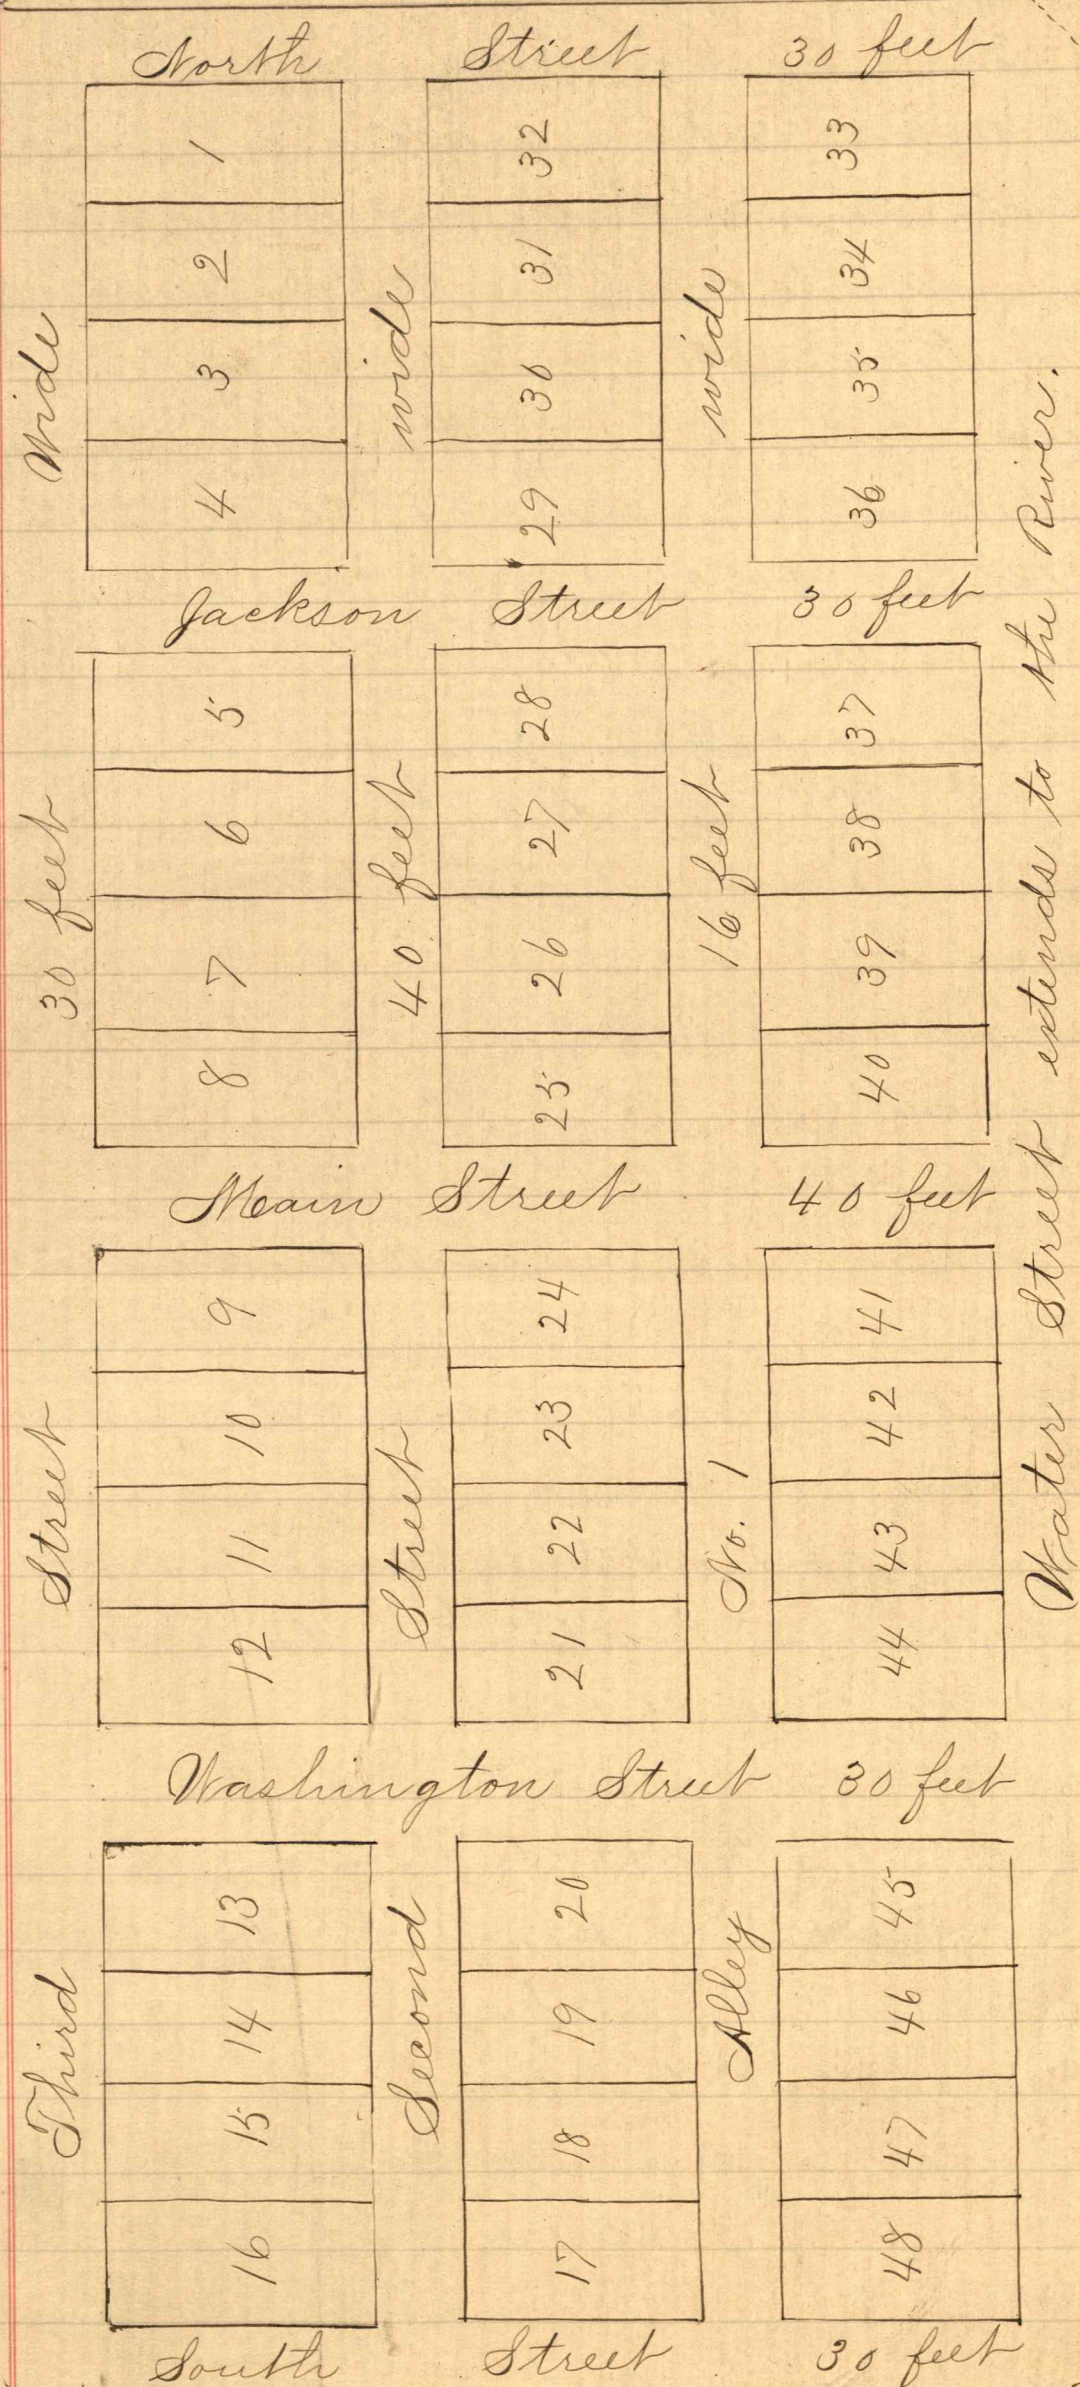 North Street 30 feet
1 32 33
2 31 34
3 30 35
4 29 36
Jackson Street 30 feet
5 28 37
6 27 38
7 26 39
8 25 40
Main Street 40 feet
9 24 41
10 23 42
11 22 43
12 21 44
Washington Street 30 feet
13 20 45
14 19 46
15 18 47
16 17 48
South Street 30 feet
Third Street 30 feet Wide
Second Street 40 feet wide
Alley No. 1 16 feet wide
Water Street extends to the River.